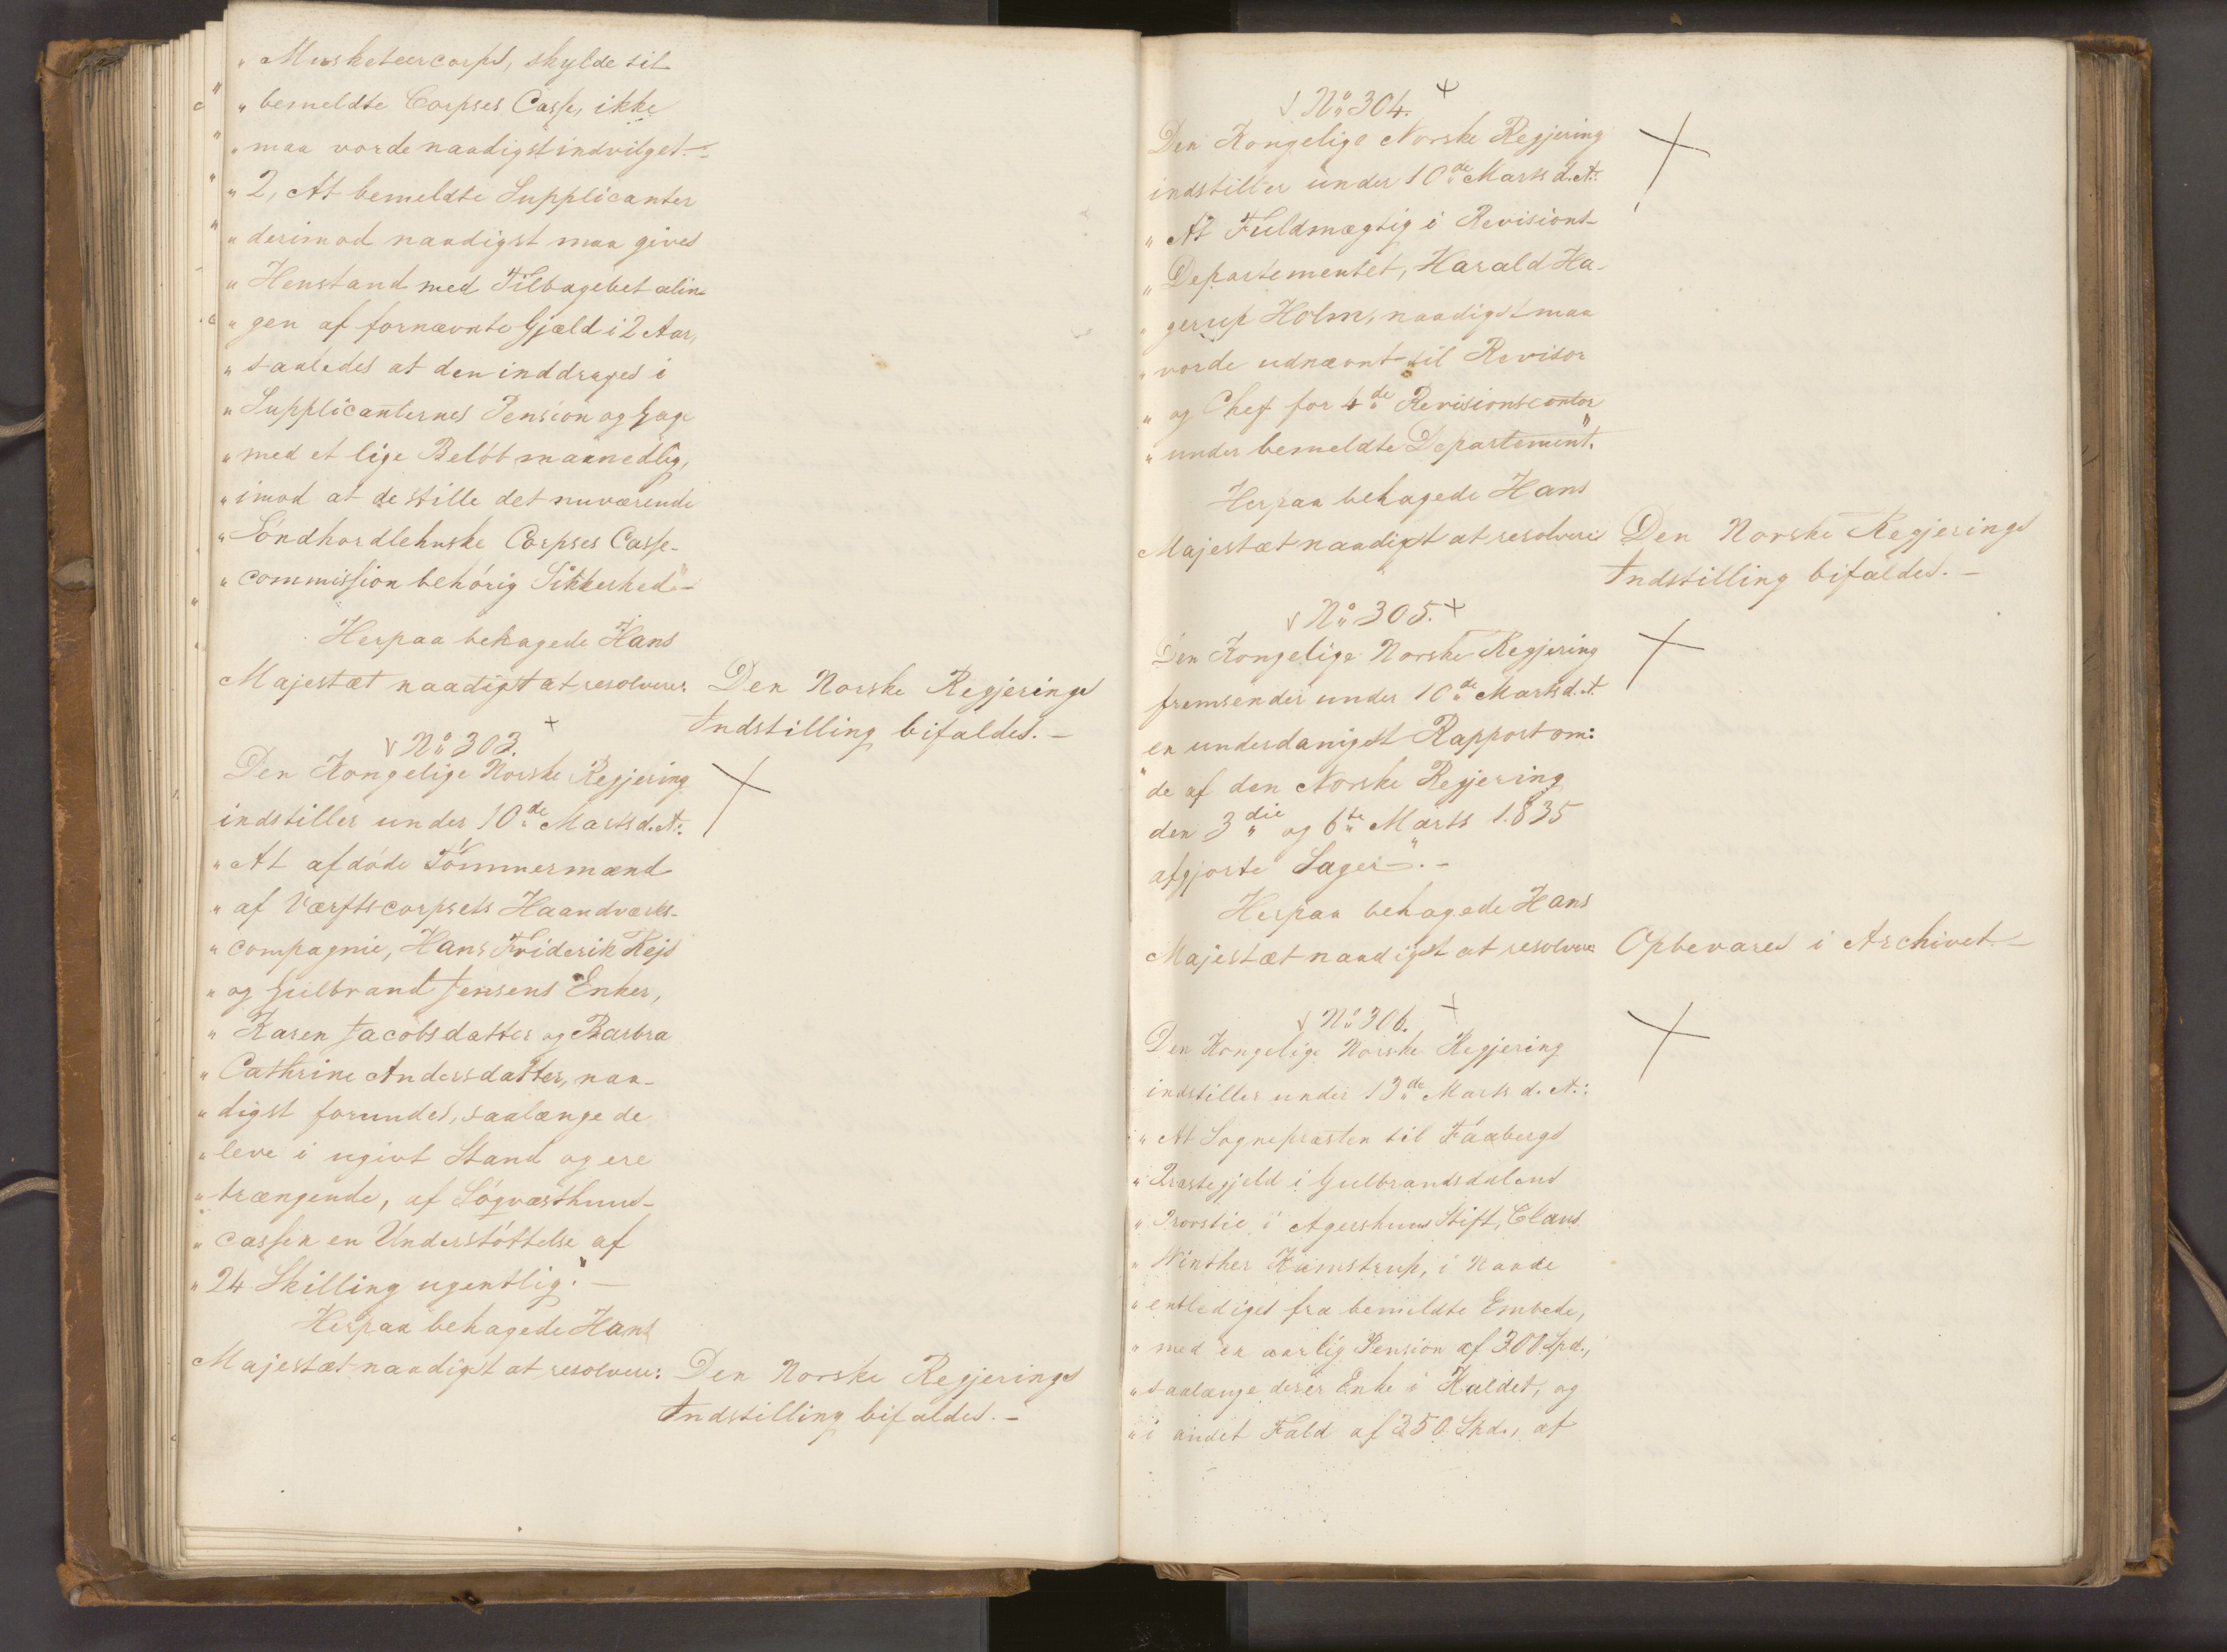 " Musketeercorps, skylde til
" bemeldte Corpses Casse, ikke
" maa vorde naadigst indvilget.-
" 2, At bemeldte Supplicanter
" derimod naadigst maa gives
" Henstand med Tilbagebetalin-
" gen af fornævnte Gjæld i 2 Aar,
" saaledes at den inddrages i
" Supplicanternes Pension og Gage
" med et lige Beløb maanedlig,
" imod at de stille det nuværende
" Söndhordlehnske Corpses Casse-
" commission behörig Sikkerhed"-
Herpaa behagede Hans
Majestæt naadigst at resolvere: Den Norske Regjerings
Indstilling bifaldes. -
No 303.
Den Kongelige Norske Regjering
indstiller under 10de Marts d. A.:
" At afdöde Tömmermænd
" af Værftscorpsets Haandværks-
" compagnie, Hans Friderik Rejs
" og Gulbrand Jensens Enker,
" Karen Jacobsdatter og Barbra
" Cathrine Andersdatter, naa-
" digst forundes, saalænge de
" leve i ugivt Stand og ere
" trængende, af Söqvæsthuus-
" cassen en Understöttelse af
" 24 Skilling ugentlig". -
Herpaa behagede Hans
Majestæt naadigst at resolvere: Den Norske Regjerings
Indstilling bifaldes. -
No 304.
Den Kongelige Norske Regjering
indstiller under 10de Marts d. A.:
" At Fuldmægtig i Revisions-
" Departementet, Harald Ha-
" gerup Holm, naadigst maa
" vorde udnævnt til Revisor
" og Chef for 4de Revisionscontor
" under bemeldte Departement".
Herpaa behagede Hans
Majestæt naadigst at resolvere Den Norske Regjerings
Indstilling bifaldes. -
No 305.
Den Kongelige Norske Regjering
fremsender under 10de Marts d. A.
en underdanigst Rapport om:
" de af den Norske Regjering
den 3die og 6te Marts 1835
afgjorte Sager". -
Herpaa behagede Hans
Majestæt naadigst at resolvere Opbevares i Archivet. -
No 306.
Den Kongelige Norske Regjering
indstiller under 13de Marts d. A.:
" At Sognepræsten til Faabergs
" Præstegjeld i Gulbrandsdalens
" Provstie i Agershuus Stift, Claus
" Winther Kamstrup, i Naade
" entlediges fra bemeldte Embede,
" med en aarlig Pension af 300 Spd.,
" saalænge der er Enke i Kaldet, og
" i andet Fald af 350 Spd., af